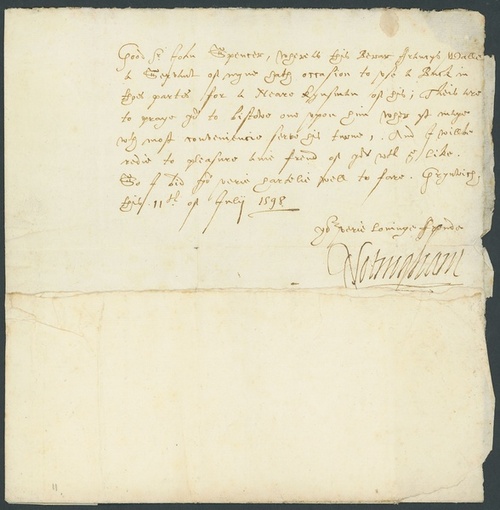 Good Sr John Spencer, whereas this Bearer
a Servant of myne hath occasion to use a Buck in
those partes for a Neare kynsman of his; Theis are
to praye you to bestowe one upon him when it maye
wth most convenience serve his turne, And I wilbe
redie to pleasure anie frend of yors wth ye like.
So I bid you verie hartelie well to fare. Grynwich,
this 11th of July 1598
Yor verie lovinge ffrende
Notingham